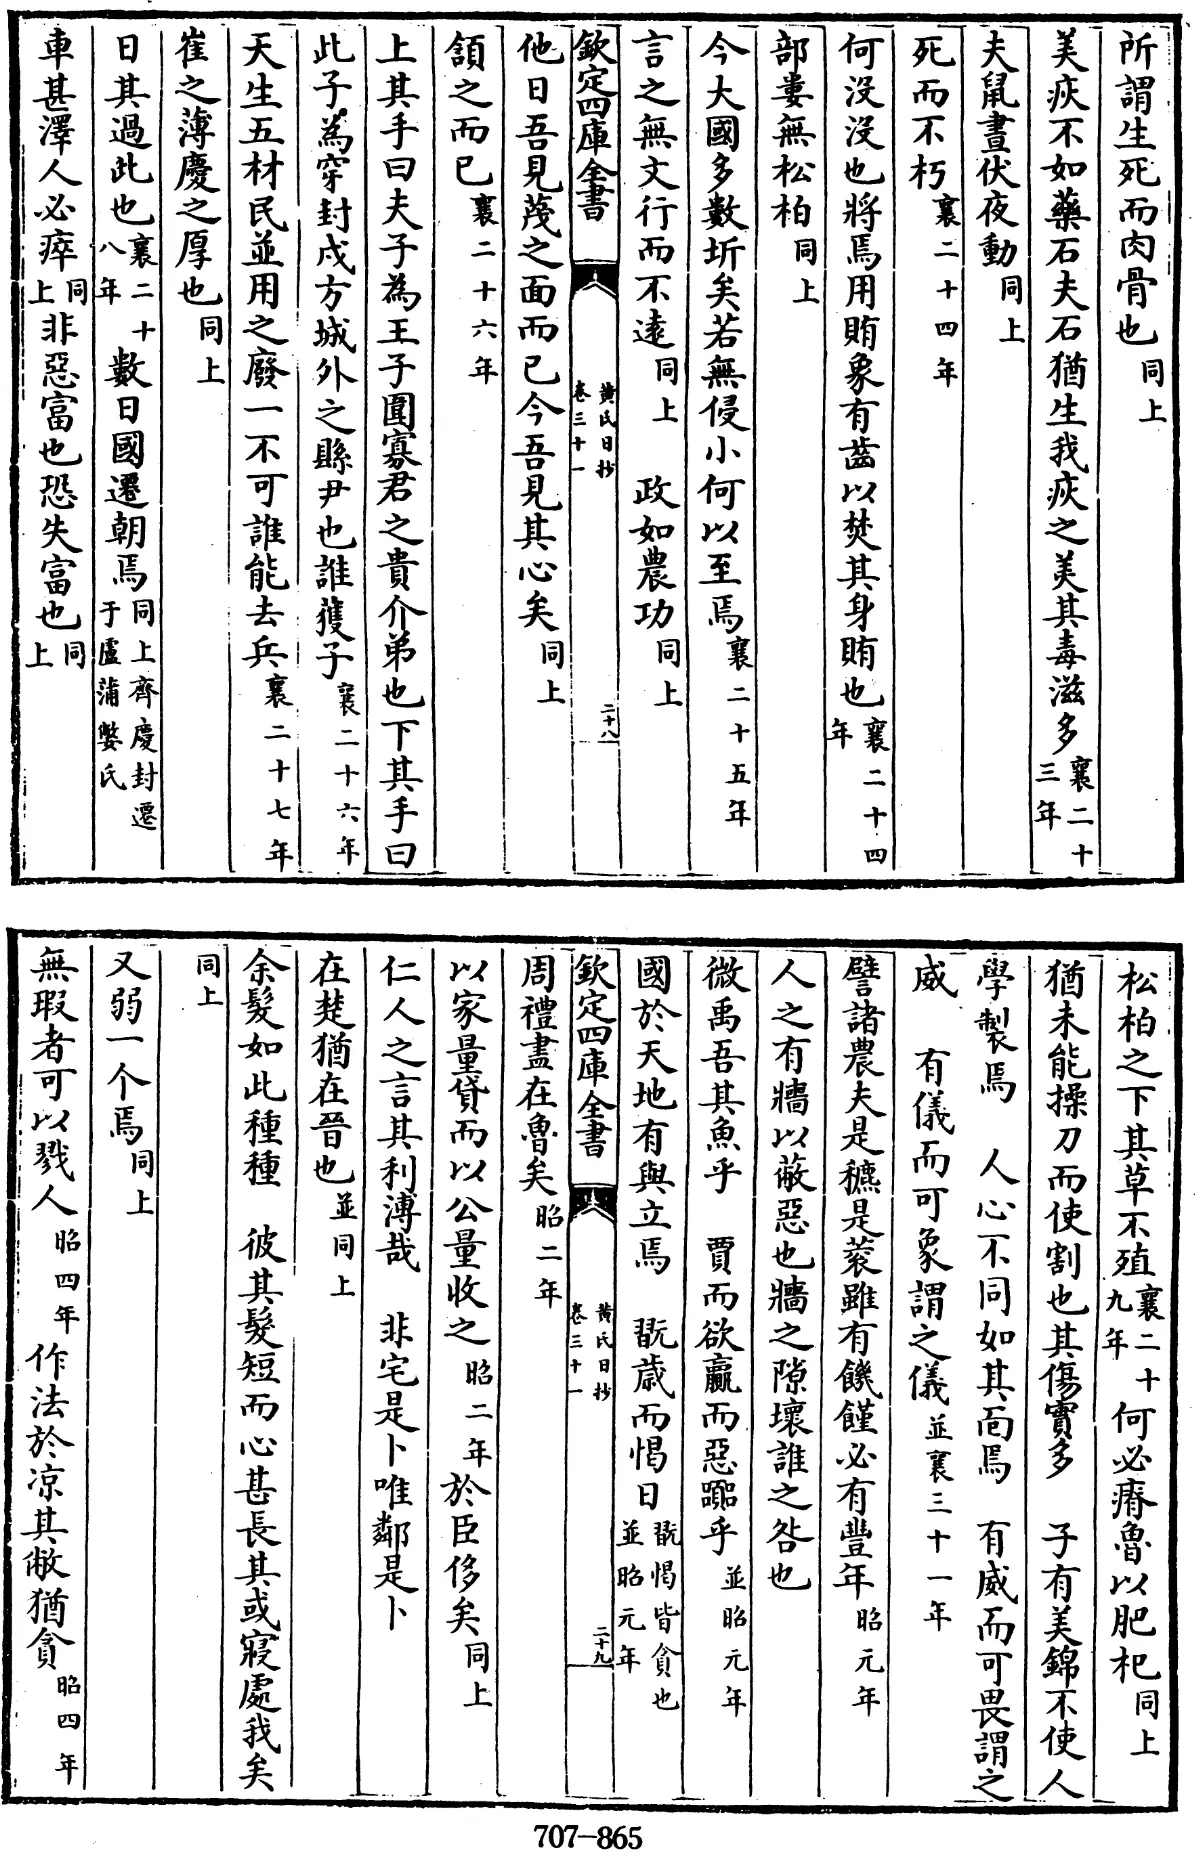 所謂生死而肉骨也同上
美疢不如藥石夫石猶生我疢之美其毒滋多襄二十三年
夫鼠晝伏夜動同上
死而不朽襄二十四年
何沒沒也將焉用賄象有齒以焚其身賄也襄二十四年
部婁無松柏同上
今大國多數圻矣若無侵小何以至焉襄二十五年
言之無文行而不遠同上　政如農功同上
欽定四庫全書　黃氏日抄卷三十一　二十八
他日吾見蔑之面而已今吾見其心矣同上
頷之而已襄二十六年
上其手曰夫子為王子圍寡君之貴介弟也下其手曰
此子為穿封戌方城外之縣尹也誰獲子襄二十六年
天生五材民並用之廢一不可誰能去兵襄二十七年
崔之薄慶之厚也同上
日其過此也襄二十八年　數日國遷朝焉同上齊慶封遷于盧蒲嫳氏
車甚澤人必瘁同上非惡富也恐失富也同上
松柏之下其草不殖襄二十九年　何必瘠魯以肥杞同上
猶未能操刀而使割也其傷實多　子有美錦不使人
學製焉　人心不同如其面焉　有威而可畏謂之
威　有儀而可象謂之儀並襄三十一年
譬諸農夫是穮是蓘雖有饑饉必有豐年昭元年
人之有牆以蔽惡也牆之隙壞誰之咎也
微禹吾其魚乎　賈而欲贏而惡嚻乎並昭元年
國於天地有與立焉　翫歲而愒日翫愒皆貪也並昭元年
欽定四庫全書　黃氏日抄卷三十一　二十九
周禮盡在魯矣昭二年
以家量貸而以公量收之昭二年於臣侈矣同上
仁人之言其利溥哉　非宅是卜唯鄰是卜
在楚猶在晉也並同上
余髮如此種種　彼其髮短而心甚長其或寢處我矣
同上
又弱一个焉同上
無瑕者可以戮人昭四年　作法於涼其敝猶貪昭四年
707-865